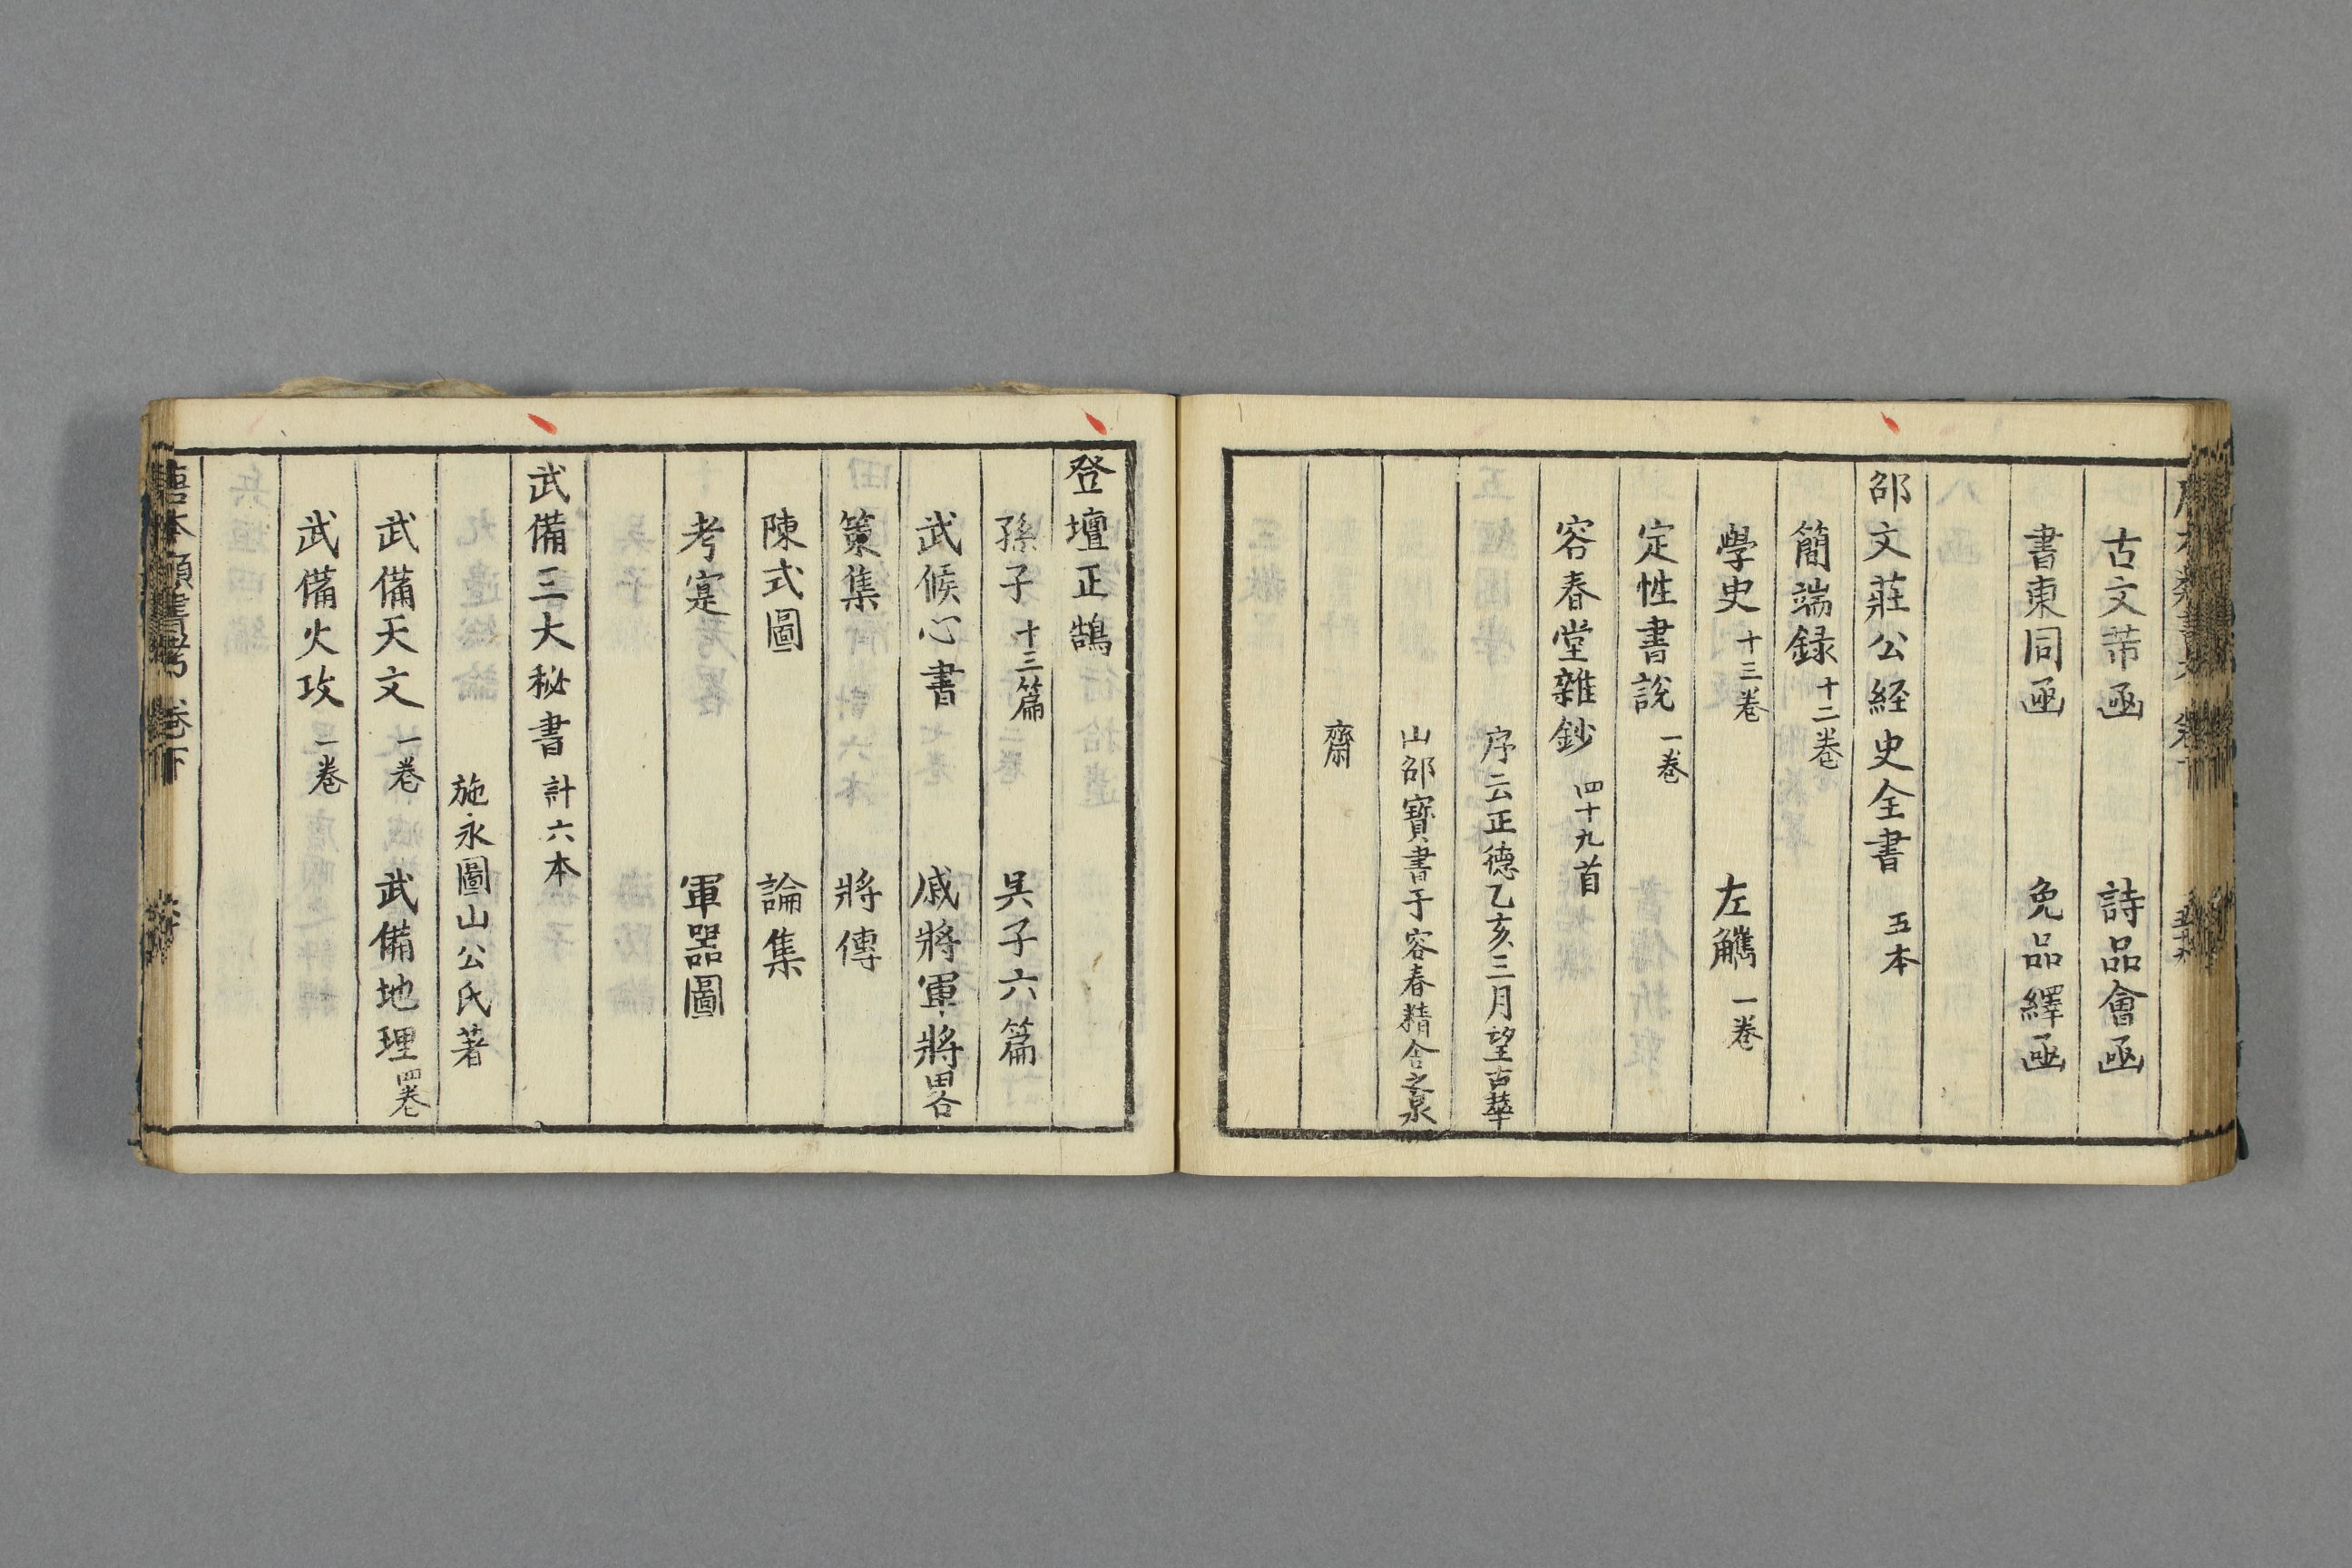 古文芾凾　詩品會凾
書東同凾　免品繹凾
邵文莊公経史全書　五本
簡端録　十二卷
學史　十三卷　左觿　一卷
定性書說　一卷
容春堂雜鈔　四十九首
序云正德乙亥三月望古華
山邵寶書于容春精舍之泉
齋
登壇正鵠
孫子　十三篇　吳子六篇
武候心書　戚將軍將畧
策集　將傳
陳式圖　論集
考寔　軍器圖
武備三大秘書　計六本
施永圖山公氏著
武備天文　一卷　武備地理　四卷
武備火攻　一卷
唐本類書考　卷下